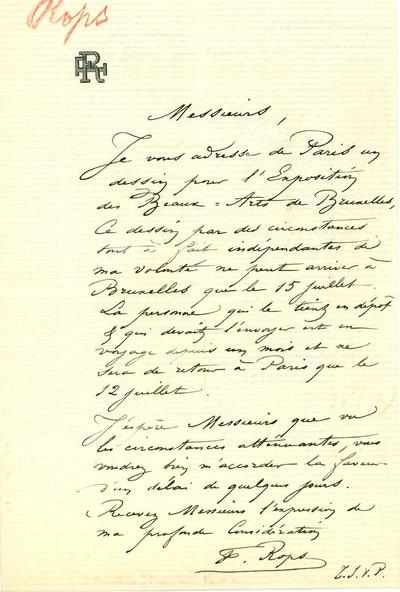 Rops
FR
Messieurs,
Je vous adresse de Paris un
dessin pour l'Exposition
des Beaux = Arts de Bruxelles,
Ce dessin par de circonstances
tout à fait indépendantes de
ma volonté ne peut arriver à
Bruxelles que le 15 juillet.
La personne qui le tient en dépôt
& qui devait l'envoyer est en
voyage depuis un mois et ne
sera de retour à Paris que le
12 juillet.
J'espère Messieurs que vu
les circonstances atténuantes, vous
voudrez bien m'accorder la faveur
d'un délai de quelques jours.
Recevez Messieurs l'expression de
ma profonde Considération
F. Rops
T.S.V.P.